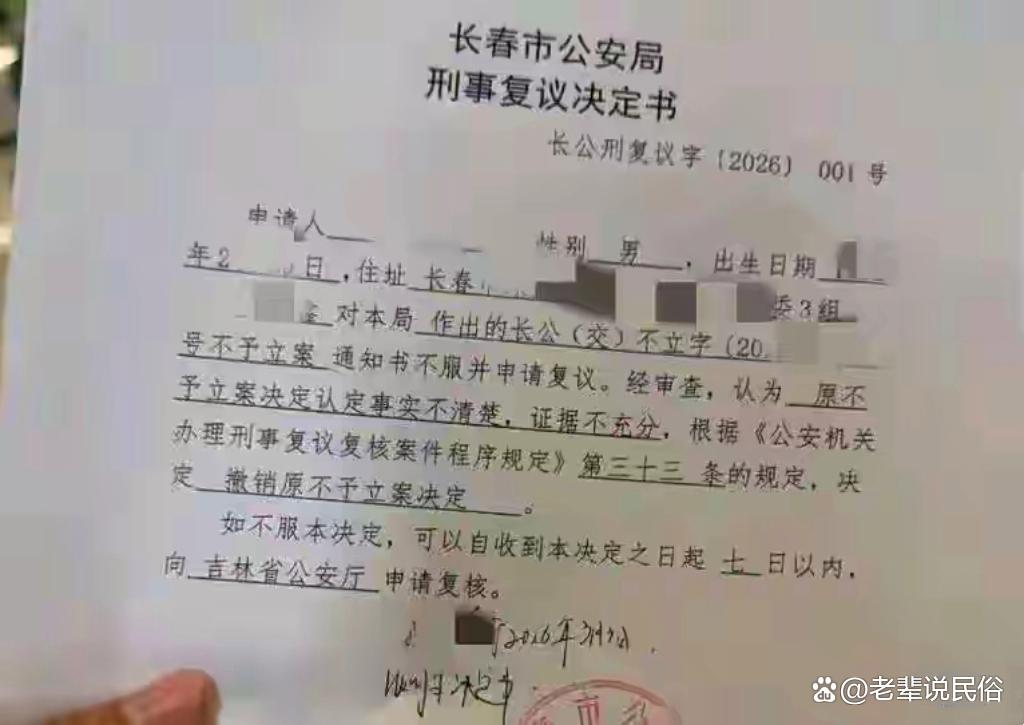 长春市公安局
刑事复议决定书
长公刑复议字〔2026〕 001 号
申请人 性别 男 ，出生日期
年2 日，住址 长春 委3组
对本局 作出的长公（交）不立字（20
号不予立案 通知书不服并申请复议。经审查，认为 原不
予立案决定认定事实不清楚，证据不充分，根据《公安机关
办理刑事复议复核案件程序规定》第三十三 条的规定，决
定 撤销原不予立案决定 。
如不服本决定，可以自收到本决定之日起 七 日以内，
向 吉林省公安厅 申请复核。
2026年3月
决定书
@老辈说民俗